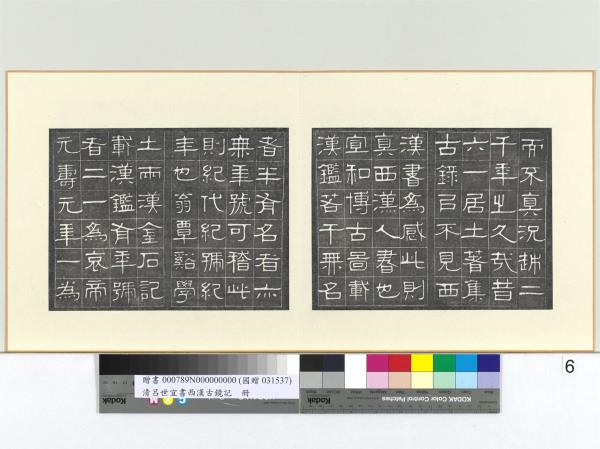 而不真況越二
千年之久哉昔
六一居士著集
古錄㠯不見西
漢書為感此則
真西漢人書也
宣和博古圖載
漢鑑若干無名
者半有名者亦
無年號可稽此
則紀代紀號紀
年也翁覃谿學
士兩漢金石記
載漢鑑有年號
者二一為哀帝
元壽元年一為
6
贈書 000789N000000000 (國贈 031537)
清呂世宜書西漢古鏡記 冊
Kodak
KODAK Color Control Patches
Kodak